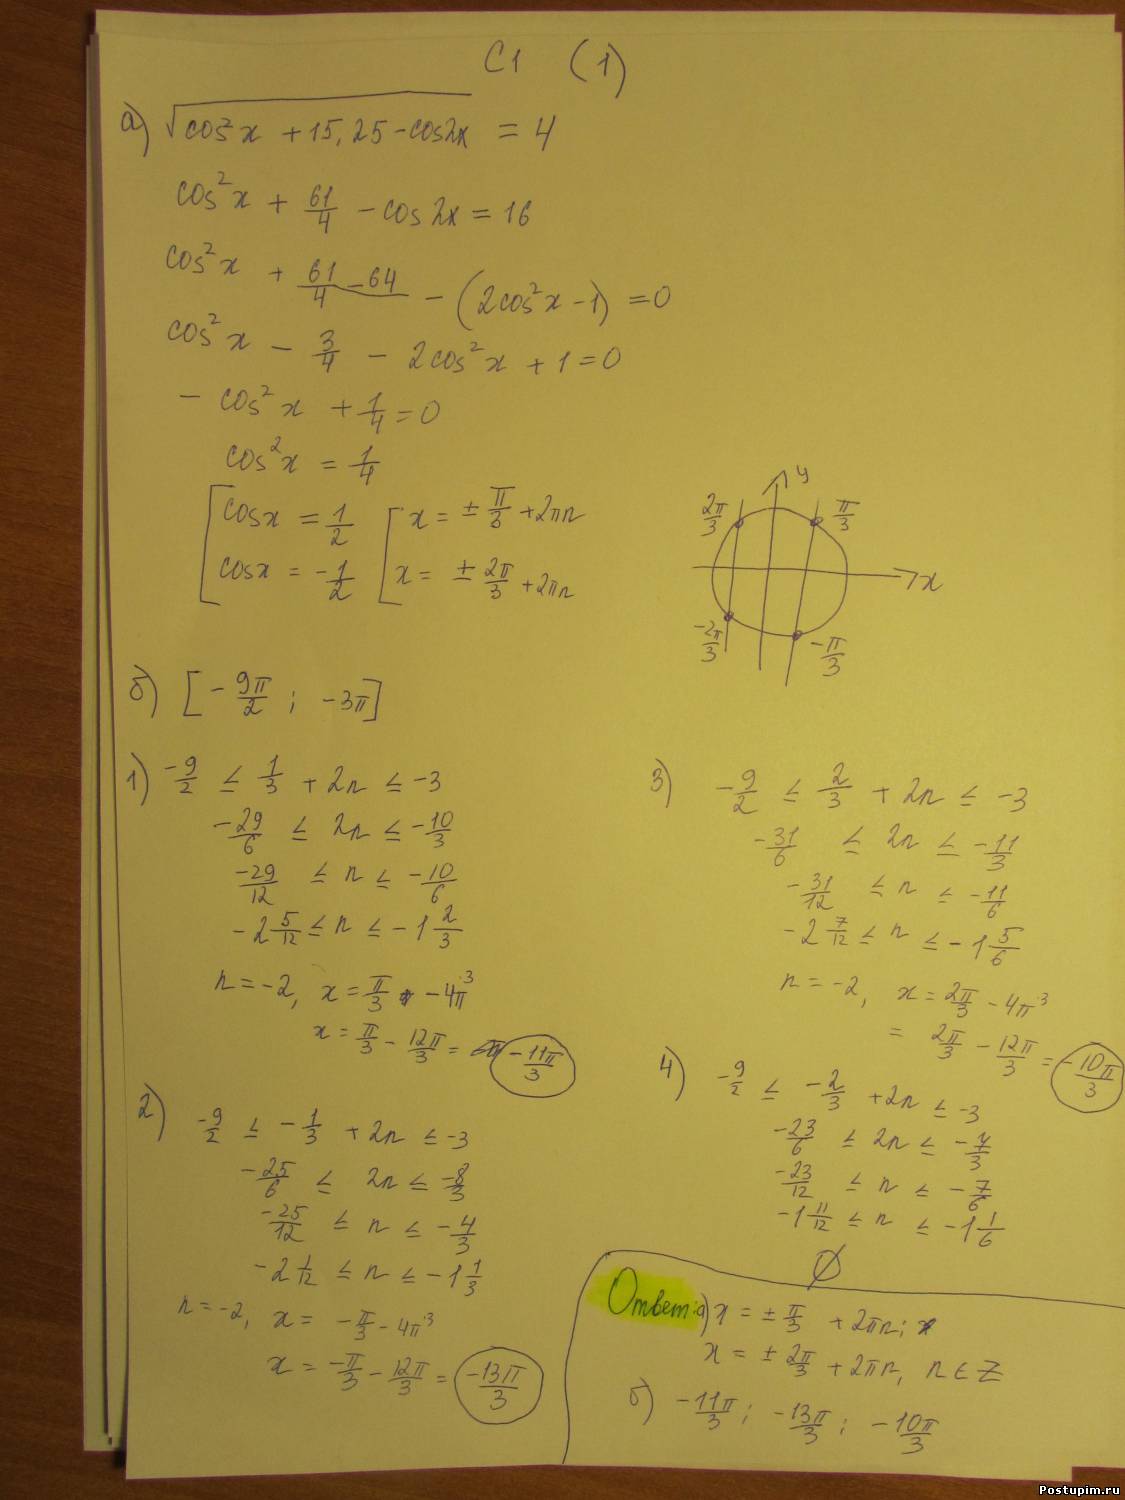 C1 (1)
а) √(cos²x + 15,25 - cos2x) = 4
cos²x + 61/4 - cos2x = 16
cos²x + (61 - 64)/4 - (2cos²x - 1) = 0
cos²x - 3/4 - 2cos²x + 1 = 0
- cos²x + 1/4 = 0
cos²x = 1/4
[ cosx = 1/2 [ x = ± π/3 + 2πn
cosx = -1/2 x = ± 2π/3 + 2πn
y
2π/3 π/3
x
-2π/3 -π/3
б) [ - 9π/2 ; -3π ]
1) -9/2 ≤ 1/3 + 2n ≤ -3
-29/6 ≤ 2n ≤ -10/3
-29/12 ≤ n ≤ -10/6
-2 5/12 ≤ n ≤ -1 2/3
n = -2, x = π/3 - 4π ³
x = π/3 - 12π/3 = -11π/3
2) -9/2 ≤ -1/3 + 2n ≤ -3
-25/6 ≤ 2n ≤ -8/3
-25/12 ≤ n ≤ -4/3
-2 1/12 ≤ n ≤ -1 1/3
n = -2, x = -π/3 - 4π ³
x = -π/3 - 12π/3 = -13π/3
3) -9/2 ≤ 2/3 + 2n ≤ -3
-31/6 ≤ 2n ≤ -11/3
-31/12 ≤ n ≤ -11/6
-2 7/12 ≤ n ≤ -1 5/6
n = -2, x = 2π/3 - 4π ³
= 2π/3 - 12π/3 = -10π/3
4) -9/2 ≤ -2/3 + 2n ≤ -3
-23/6 ≤ 2n ≤ -7/3
-23/12 ≤ n ≤ -7/6
-1 11/12 ≤ n ≤ -1 1/6
∅
Ответ: а) x = ± π/3 + 2πn;
x = ± 2π/3 + 2πn, n ∈ Z
б) -11π/3 ; -13π/3 ; -10π/3
Postupim.ru